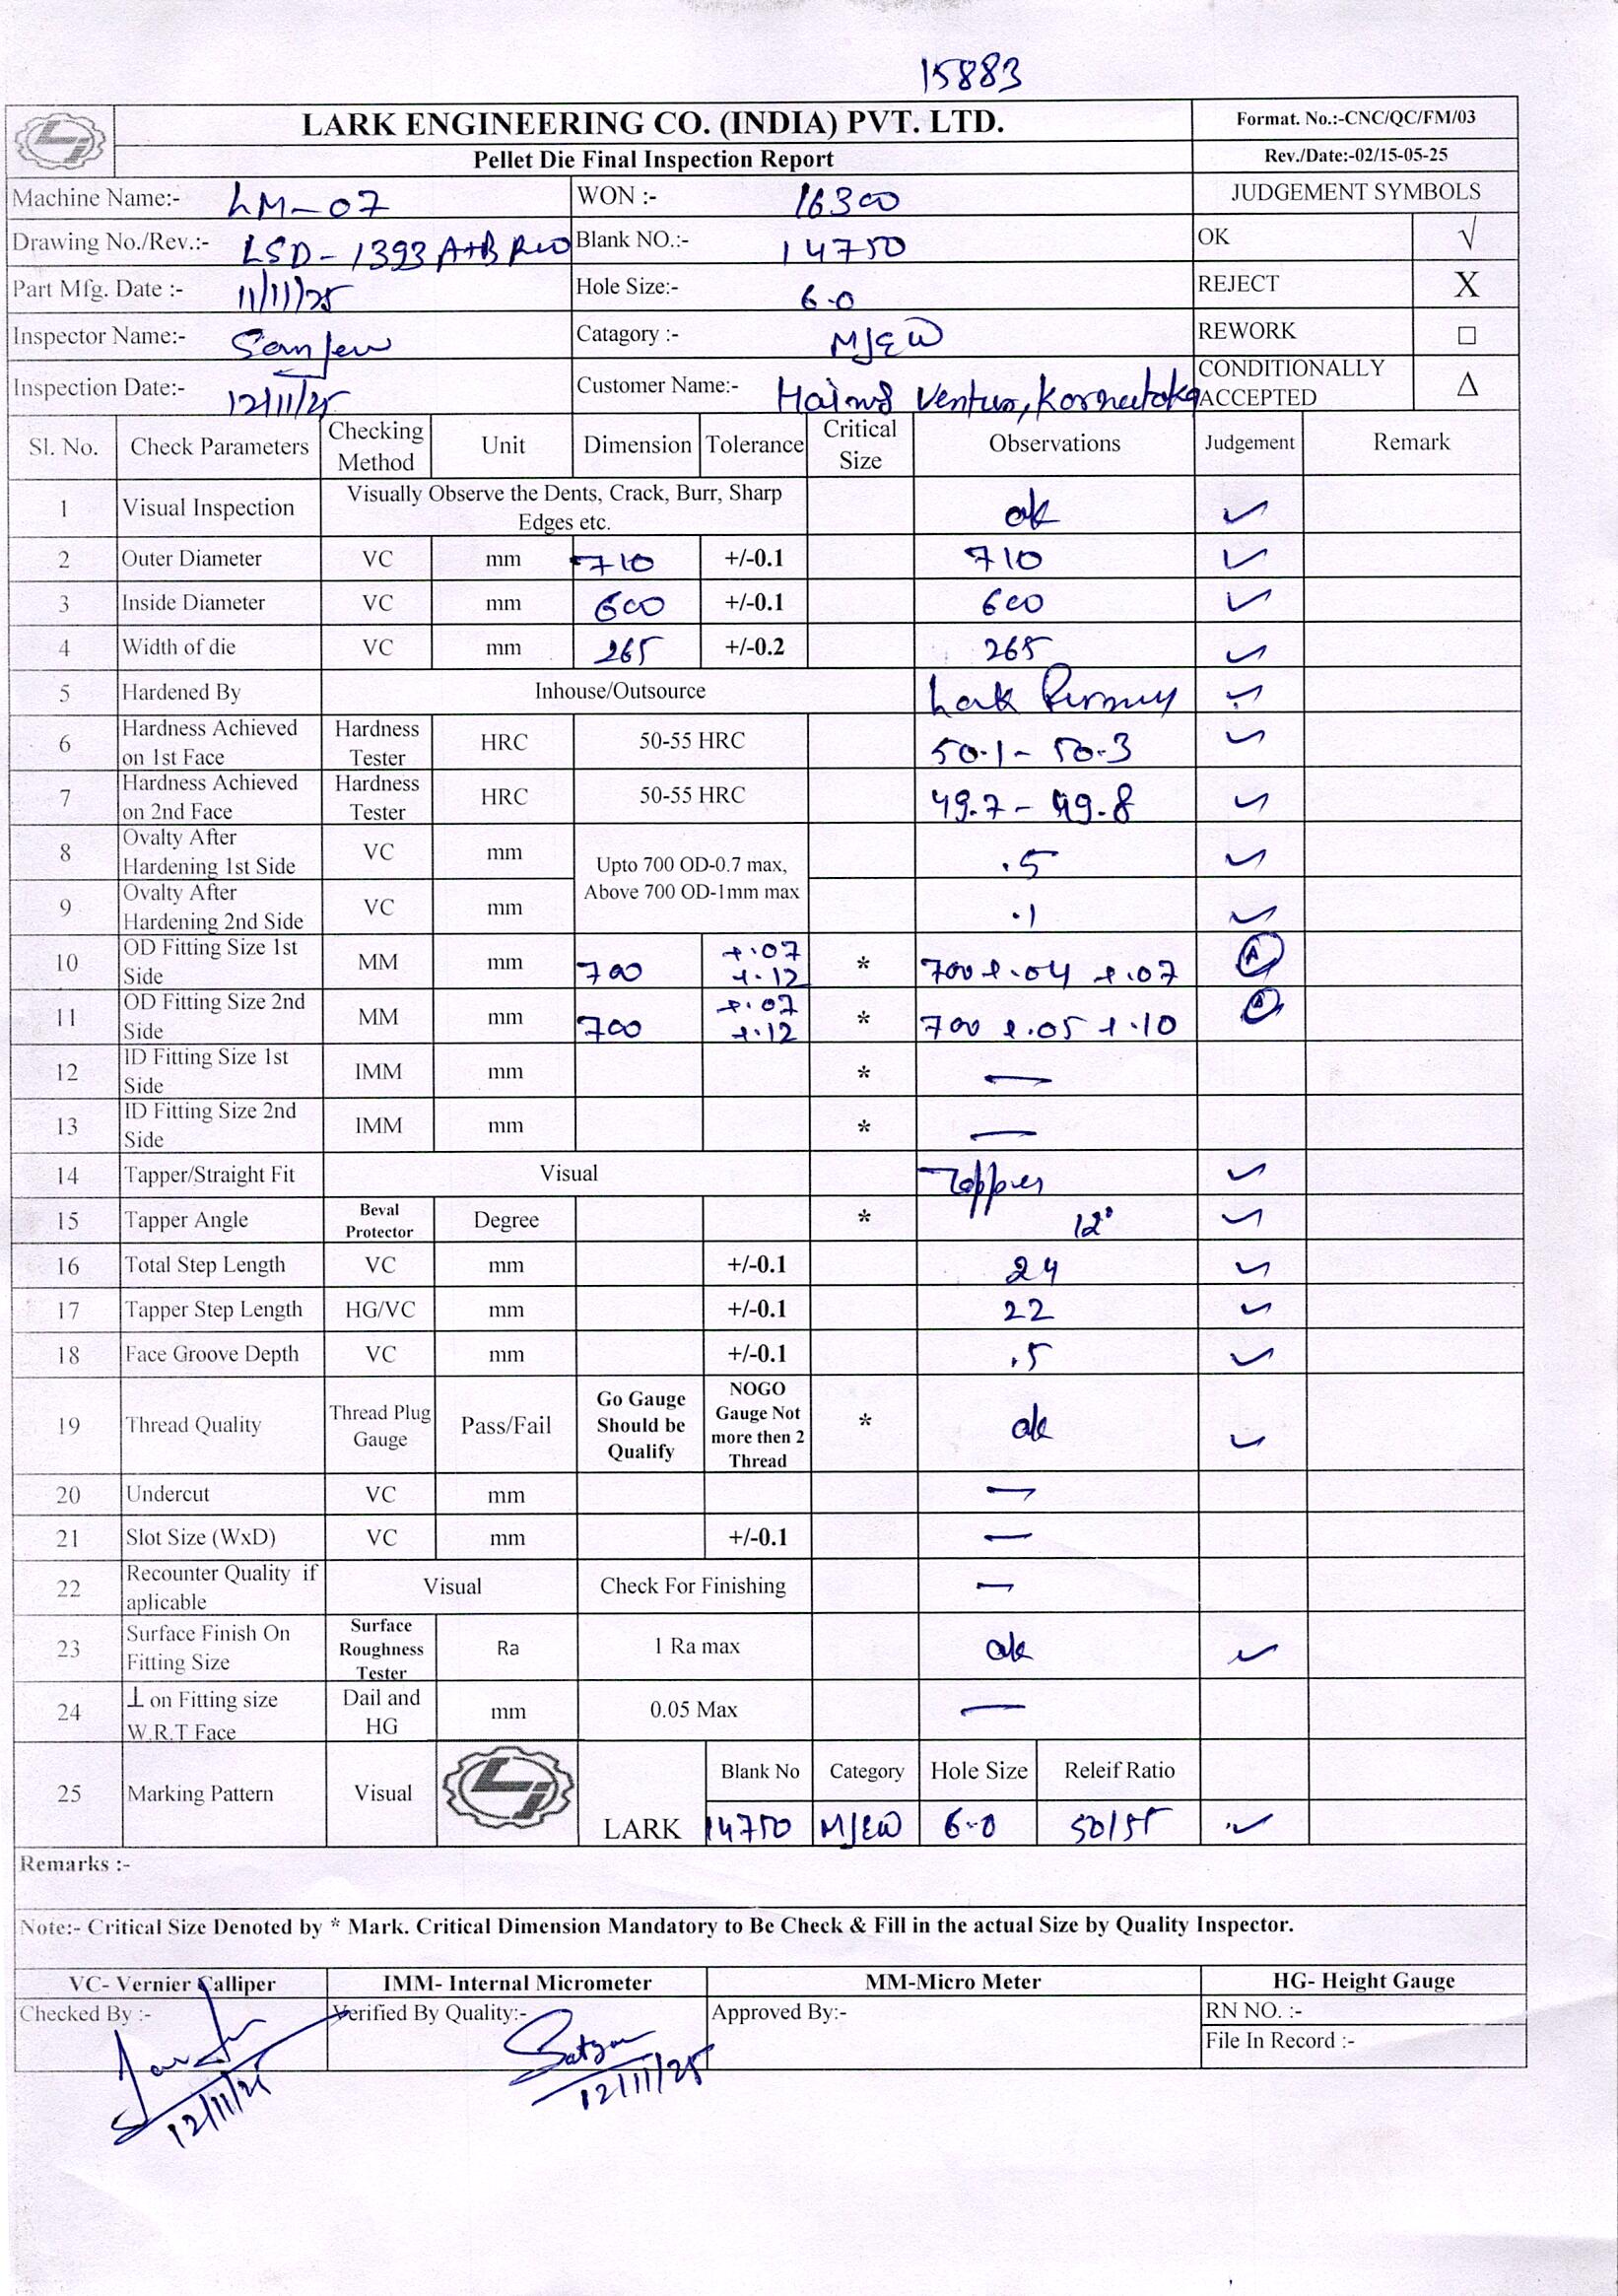 15883
LARK ENGINEERING CO. (INDIA) PVT. LTD. Format. No.:-CNC/QC/FM/03
Pellet Die Final Inspection Report Rev./Date:-02/15-05-25
Machine Name:- LM-07 WON :- 16300 JUDGEMENT SYMBOLS
Drawing No./Rev.:- LSD-1393 A+B Blank NO.:- 14750 OK √
Part Mfg. Date :- 11/11/25 Hole Size:- 6.0 REJECT X
Inspector Name:- Catagory :- REWORK □
Inspection Date:- 12/11/25 Customer Name:- CONDITIONALLY ACCEPTED Δ
Sl. No. Check Parameters Checking Method Unit Dimension Tolerance Critical Size Observations Judgement Remark
1 Visual Inspection Visually Observe the Dents, Crack, Burr, Sharp Edges etc. ok ✓
2 Outer Diameter VC mm 710 +/-0.1 710 ✓
3 Inside Diameter VC mm 600 +/-0.1 600 ✓
4 Width of die VC mm 265 +/-0.2 265 ✓
5 Hardened By Inhouse/Outsource Lark ✓
6 Hardness Achieved on 1st Face Hardness Tester HRC 50-55 HRC 50.1 - 50.3 ✓
7 Hardness Achieved on 2nd Face Hardness Tester HRC 50-55 HRC 49.7 - 49.8 ✓
8 Ovalty After Hardening 1st Side VC mm Upto 700 OD-0.7 max, Above 700 OD-1mm max .5 ✓
9 Ovalty After Hardening 2nd Side VC mm .1 ✓
10 OD Fitting Size 1st Side MM mm 700 +.07 +.12 * 700 +.04 +.07
11 OD Fitting Size 2nd Side MM mm 700 +.07 +.12 * 700 +.05 +.10
12 ID Fitting Size 1st Side IMM mm * —
13 ID Fitting Size 2nd Side IMM mm * —
14 Tapper/Straight Fit Visual Tapper ✓
15 Tapper Angle Beval Protector Degree * 12° ✓
16 Total Step Length VC mm +/-0.1 24 ✓
17 Tapper Step Length HG/VC mm +/-0.1 22 ✓
18 Face Groove Depth VC mm +/-0.1 .5 ✓
19 Thread Quality Thread Plug Gauge Pass/Fail Go Gauge Should be Qualify NOGO Gauge Not more then 2 Thread * ok ✓
20 Undercut VC mm —
21 Slot Size (WxD) VC mm +/-0.1 —
22 Recounter Quality if aplicable Visual Check For Finishing —
23 Surface Finish On Fitting Size Surface Roughness Tester Ra 1 Ra max ok ✓
24 ⊥ on Fitting size W.R.T Face Dail and HG mm 0.05 Max —
25 Marking Pattern Visual LARK Blank No Category Hole Size Releif Ratio
14750 6.0 50/55 ✓
Remarks :-
Note:- Critical Size Denoted by * Mark. Critical Dimension Mandatory to Be Check & Fill in the actual Size by Quality Inspector.
VC- Vernier Calliper IMM- Internal Micrometer MM-Micro Meter HG- Height Gauge
Checked By :- Verified By Quality:- Approved By:- RN NO. :-
File In Record :-
12/11/25 12/11/25